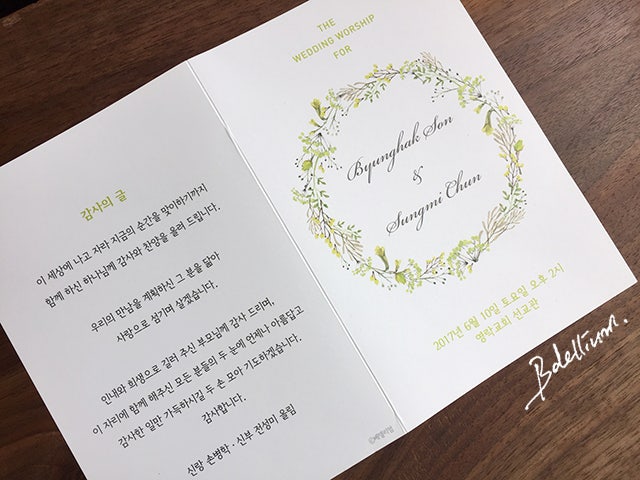 감사의 글
이 세상에 나고 자라 지금의 순간을 맞이하기까지
함께 하신 하나님께 감사와 찬양을 올려 드립니다.
우리의 만남을 계획하신 그 분을 닮아
사랑으로 섬기며 살겠습니다.
인내와 희생으로 길러 주신 부모님께 감사 드리며,
이 자리에 함께 해주신 모든 분들의 두 눈에 언제나 아름답고
감사한 일만 가득하시길 두 손 모아 기도하겠습니다.
감사합니다.
신랑 손병학 · 신부 전성미 올림
THE
WEDDING WORSHIP
FOR
Byunghak Son
&
Sungmi Chun
2017년 6월 10일 토요일 오후 2시
영락교회 선교관
Bdellium.